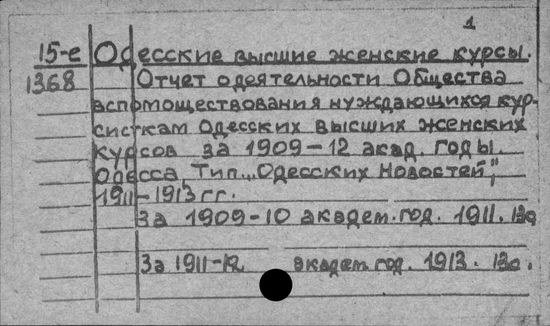 1
15-е Одесские высшие женские курсы.
1368 Отчет о деятельности Общества
вспомоществования нуждающихся кур-
систкам Одесских высших женских
курсов за 1909-12 акад. годы.
Одесса, Тип. „Одесских Новостей",
1911-1913 гг.
За 1909-10 академ. год. 1911.
За 1911-12 академ. год. 1913.